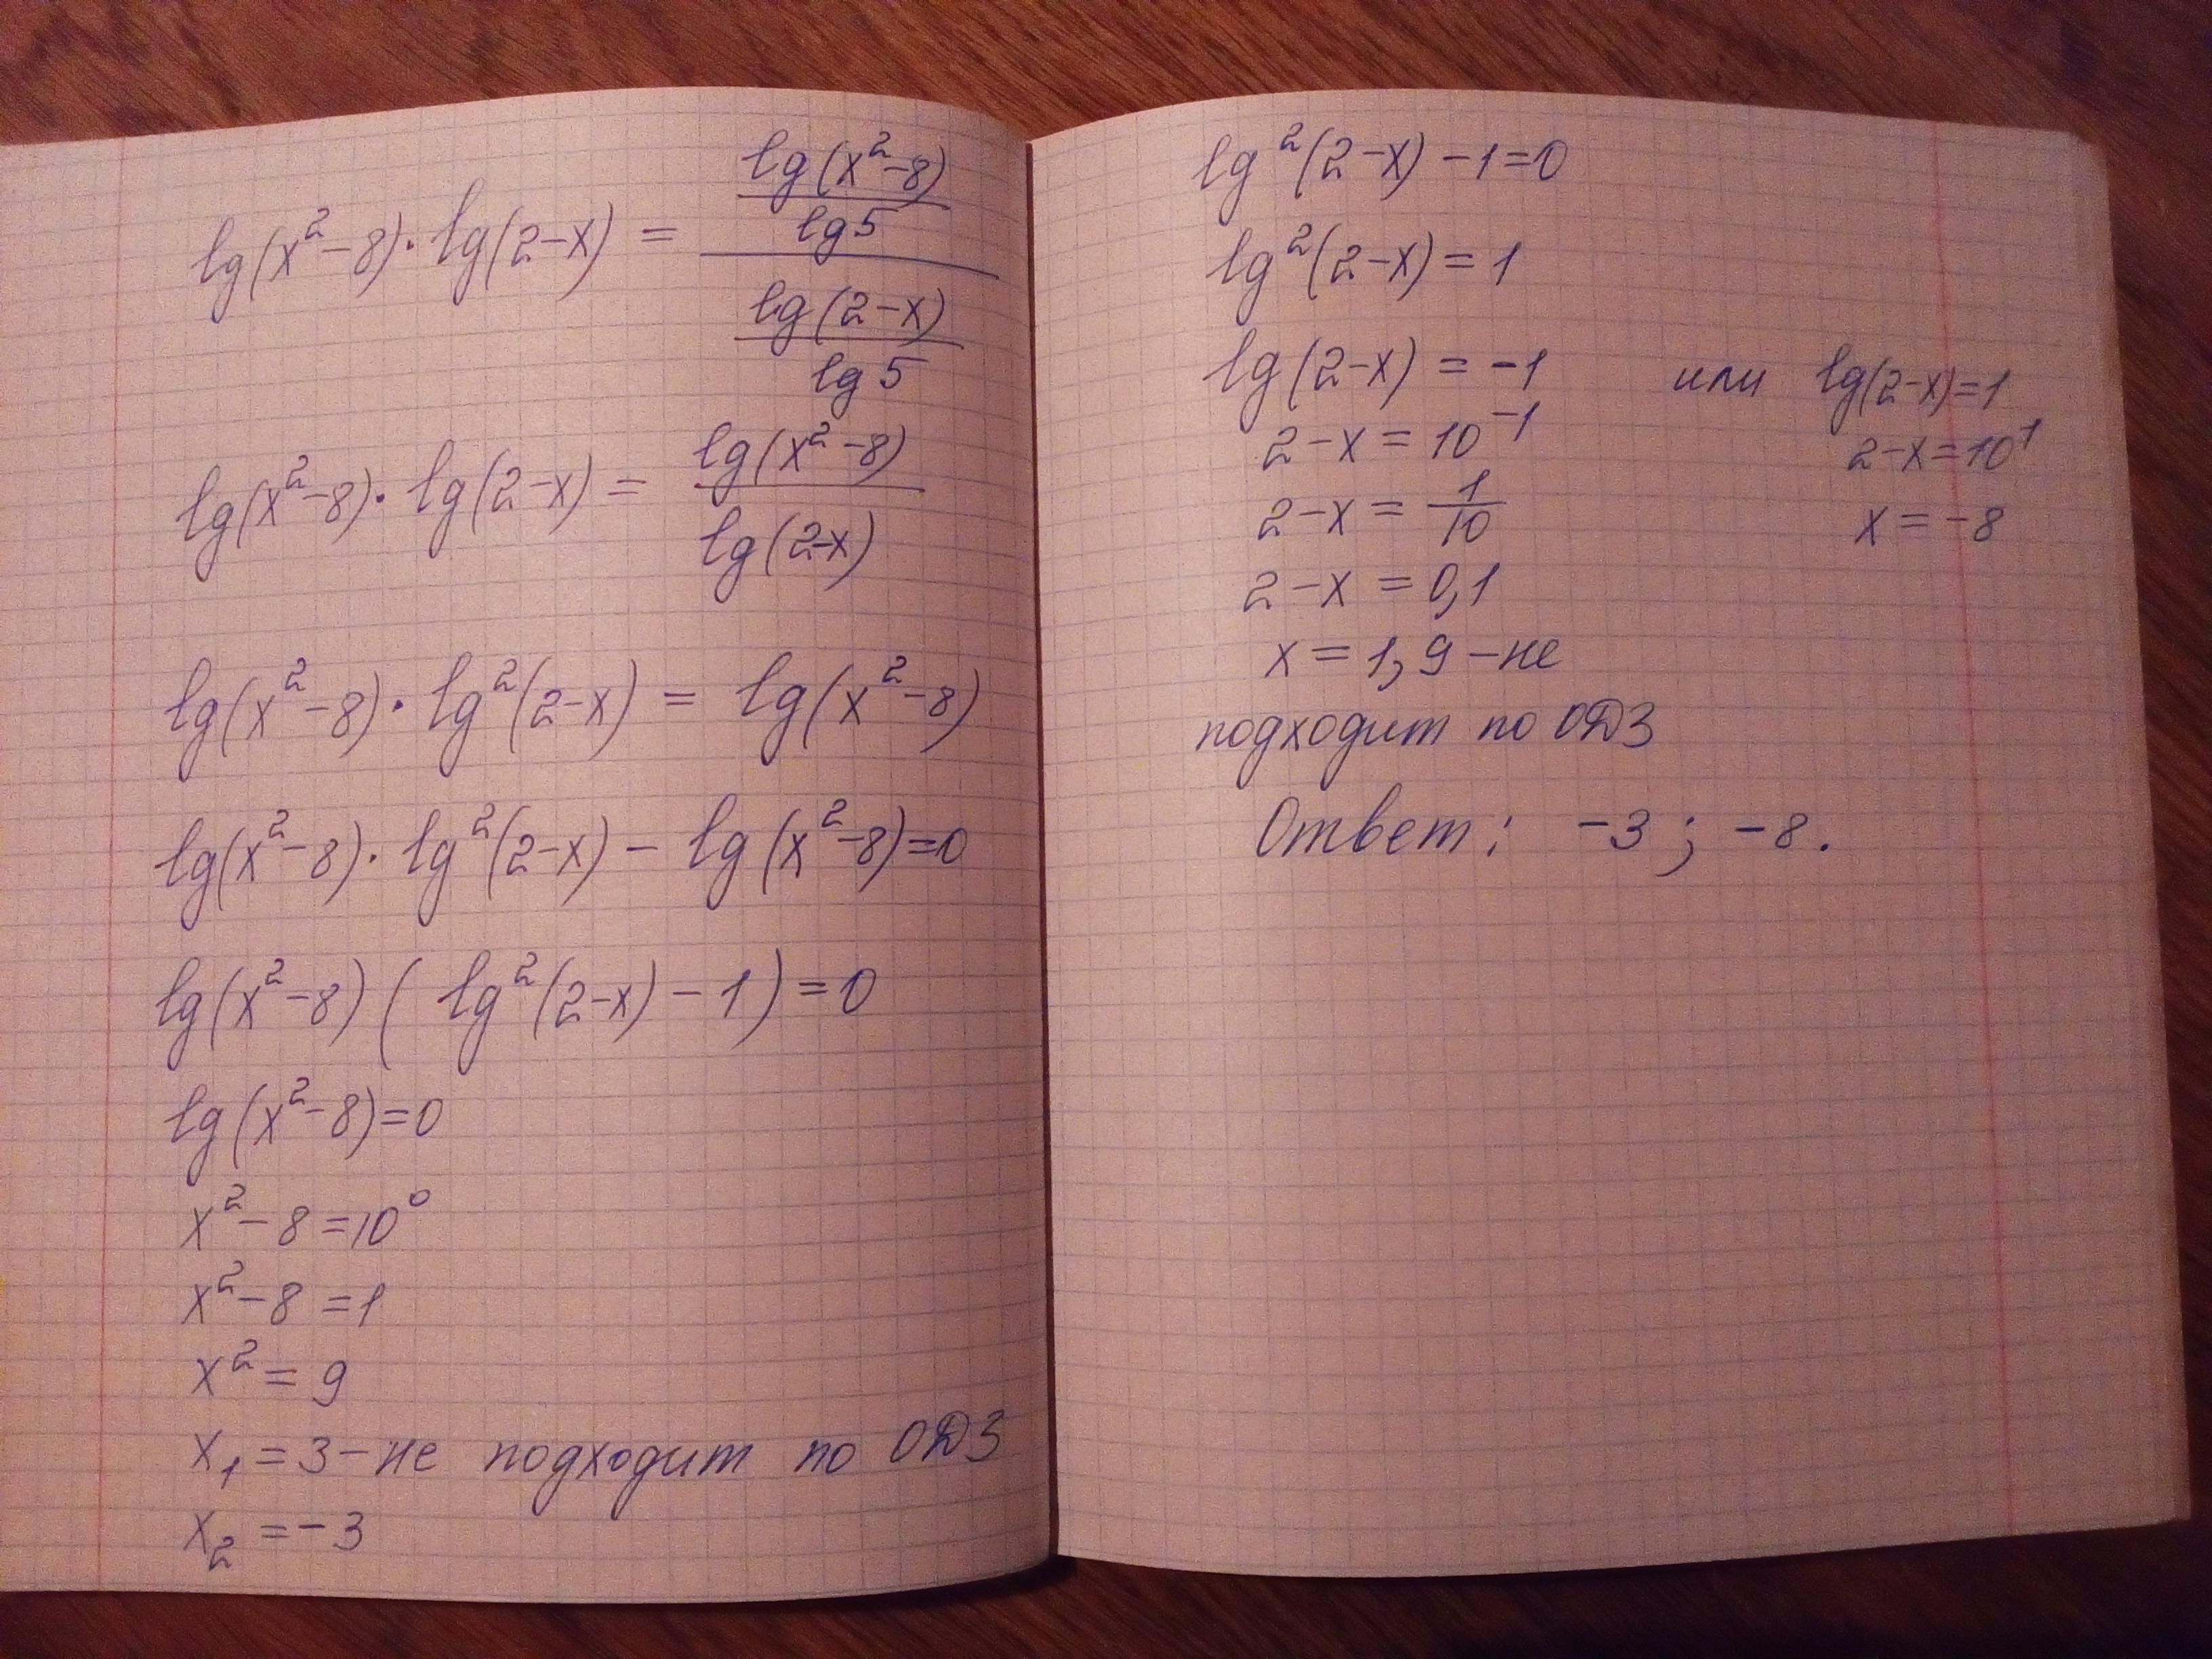 lg(x²-8)·lg(2-x) = \frac{\frac{lg(x²-8)}{lg5}}{\frac{lg(2-x)}{lg5}}
lg(x²-8)·lg(2-x) = \frac{lg(x²-8)}{lg(2-x)}
lg(x²-8)·lg²(2-x) = lg(x²-8)
lg(x²-8)·lg²(2-x) - lg(x²-8)=0
lg(x²-8)(lg²(2-x)-1)=0
lg(x²-8)=0
x²-8=10⁰
x²-8=1
x²=9
x₁=3-не подходит по ОДЗ
x₂=-3
lg²(2-x)-1=0
lg²(2-x)=1
lg(2-x)=-1 или lg(2-x)=1
2-x=10⁻¹ 2-x=10¹
2-x=\frac{1}{10} x=-8
2-x=0,1
x=1,9-не
подходит по ОДЗ
Ответ: -3; -8.